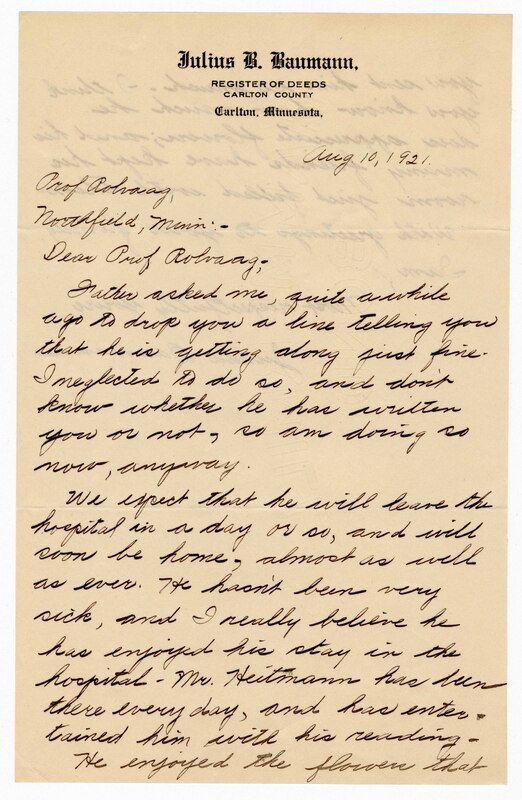 Julius B. Baumann,
REGISTER OF DEEDS
CARLTON COUNTY
Carlton, Minnesota,
Aug 10, 1921.
Prof Rolvaag,
Northfield, Minn:-
Dear Prof Rolvaag;
Father asked me, quite a while
ago to drop you a line telling you
that he is getting along just fine.
I neglected to do so, and don't
know whether he has written
you or not, so am doing so
now, anyway.
We expect that he will leave the
hospital in a day or so, and will
soon be home, almost as well
as ever. He hasn't been very
sick, and I really believe he
has enjoyed his stay in the
hospital - Mr. Heitmann has been
there every day, and has enter-
tained him with his reading-
He enjoyed the flowers that